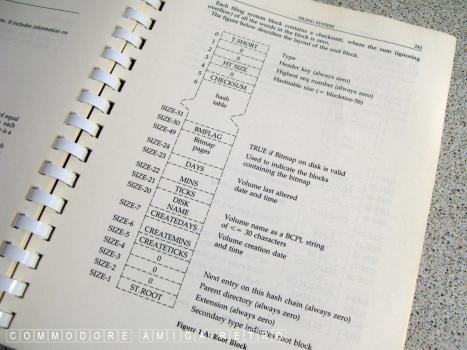 . It includes information on
of equal
, each
is a
FILING SYSTEM
243
Each filing system block contains a checksum, where the sum (ignoring
overflow) of all the words in the block is zero.
The figure below describes the layout of the root block.
0 T.SHORT Type
1 0 Header key (always zero)
2 0 Highest seq number (always zero)
3 HT SIZE Hashtable size (= blocksize-56)
4 0
5 CHECKSUM
6 hash
table
SIZE-51
SIZE-50 BMFLAG TRUE if Bitmap on disk is valid
SIZE-49 Bitmap Used to indicate the blocks
SIZE-24 pages containing the bitmap
SIZE-23 DAYS Volume last altered
SIZE-22 MINS date and time
SIZE-21 TICKS
SIZE-20 DISK Volume name as a BCPL string
NAME of <= 30 characters
SIZE-7 CREATEDAYS Volume creation date
SIZE-6 CREATEMINS and time
SIZE-5 CREATETICKS
SIZE-4 0 Next entry on this hash chain (always zero)
SIZE-3 0 Parent directory (always zero)
SIZE-2 0 Extension (always zero)
SIZE-1 ST.ROOT Secondary type indicates root block
Root Block
COMMODORE AMIGA RETRO